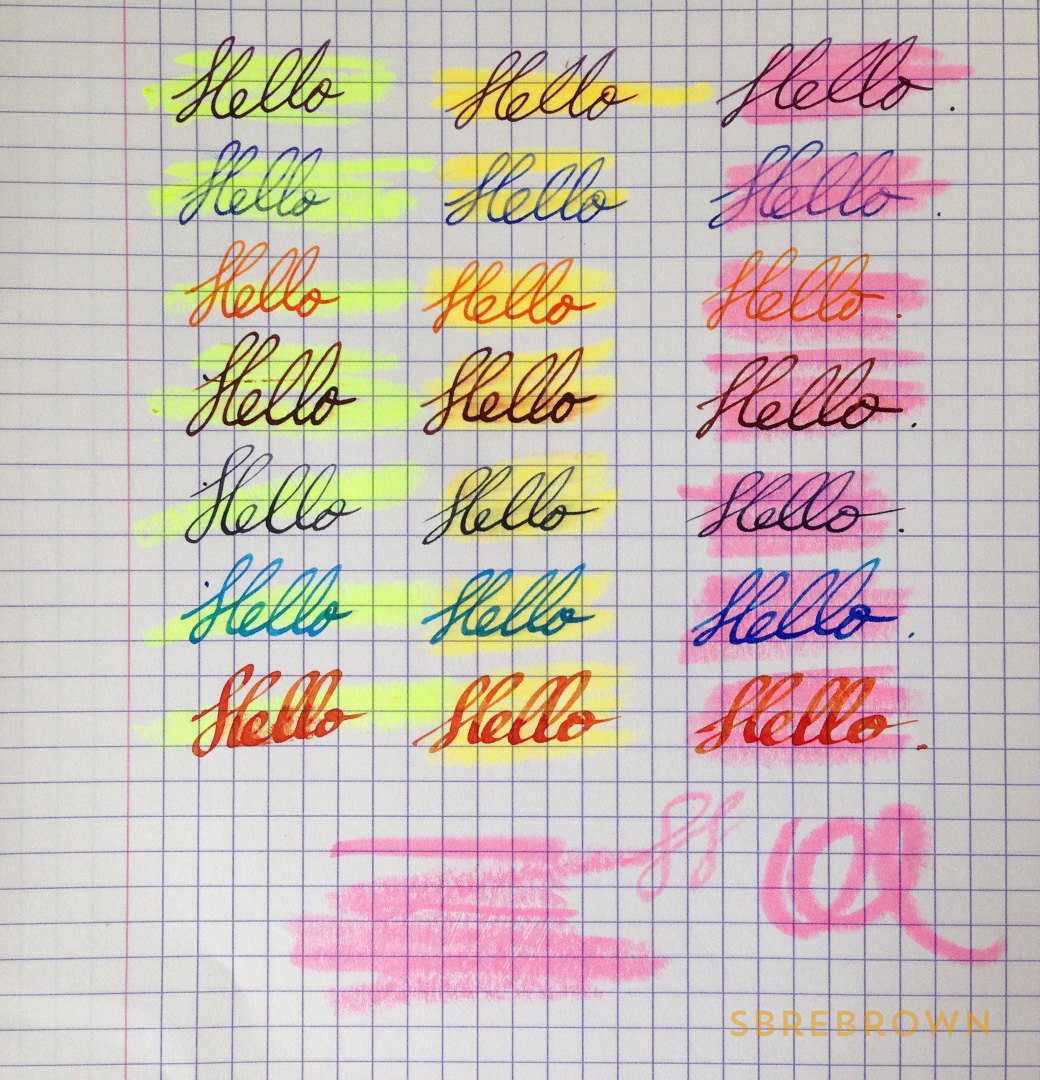 Hello Hello Hello.
Hello Hello Hello.
Hello Hello Hello.
Hello Hello Hello.
Hello Hello Hello.
Hello Hello Hello.
Hello Hello Hello.
SBREBROWN